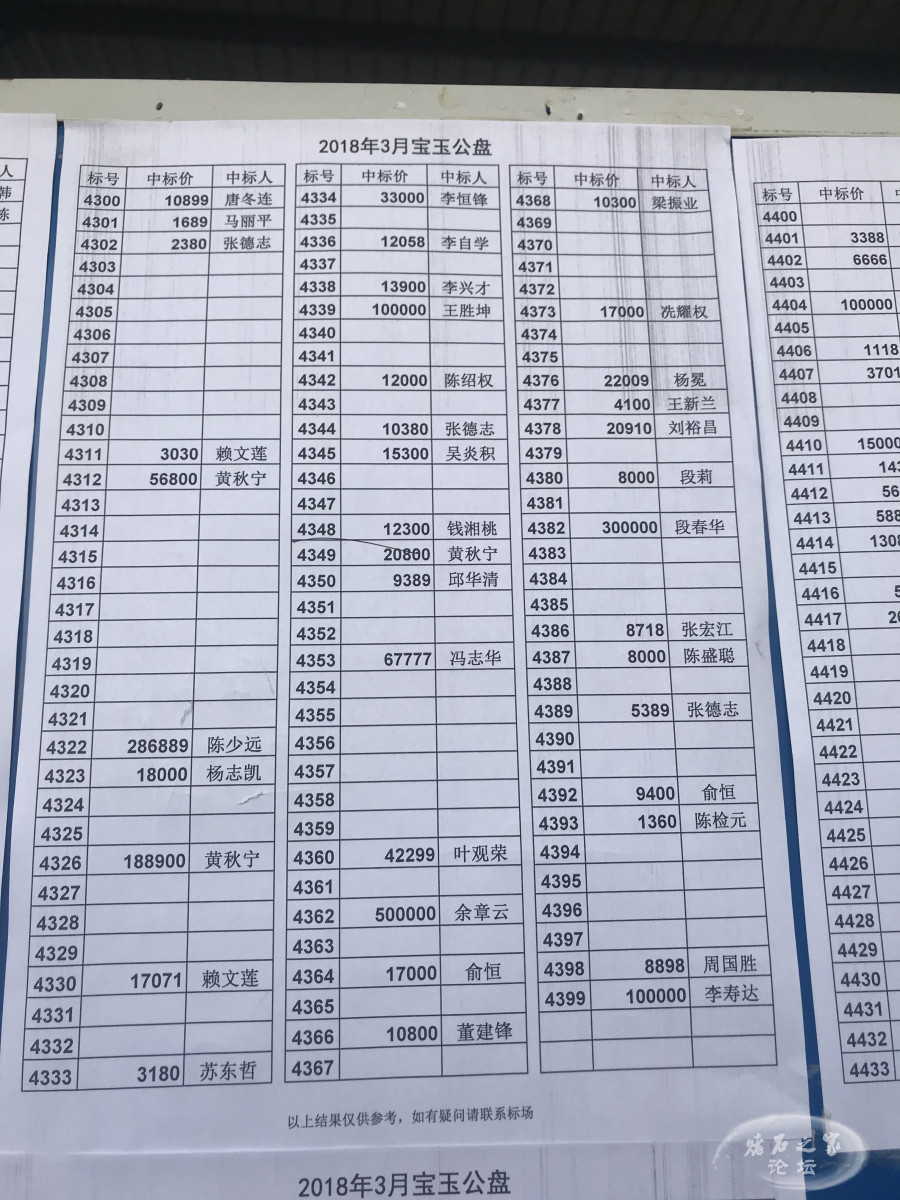 人
韩
栋
2018年3月宝玉公盘
标号 中标价 中标人
4300 10899 唐冬连
4301 1689 马丽平
4302 2380 张德志
4303
4304
4305
4306
4307
4308
4309
4310
4311 3030 赖文莲
4312 56800 黄秋宁
4313
4314
4315
4316
4317
4318
4319
4320
4321
4322 286889 陈少远
4323 18000 杨志凯
4324
4325
4326 188900 黄秋宁
4327
4328
4329
4330 17071 赖文莲
4331
4332
4333 3180 苏东哲
标号 中标价 中标人
4334 33000 李恒锋
4335
4336 12058 李自学
4337
4338 13900 李兴才
4339 100000 王胜坤
4340
4341
4342 12000 陈绍权
4343
4344 10380 张德志
4345 15300 吴炎积
4346
4347
4348 12300 钱湘桃
4349 20800 黄秋宁
4350 9389 邱华清
4351
4352
4353 67777 冯志华
4354
4355
4356
4357
4358
4359
4360 42299 叶观荣
4361
4362 500000 余章云
4363
4364 17000 俞恒
4365
4366 10800 董建锋
4367
标号 中标价 中标人
4368 10300 梁振业
4369
4370
4371
4372
4373 17000 冼耀权
4374
4375
4376 22009 杨冕
4377 4100 王新兰
4378 20910 刘裕昌
4379
4380 8000 段莉
4381
4382 300000 段春华
4383
4384
4385
4386 8718 张宏江
4387 8000 陈盛聪
4388
4389 5389 张德志
4390
4391
4392 9400 俞恒
4393 1360 陈检元
4394
4395
4396
4397
4398 8898 周国胜
4399 100000 李寿达
以上结果仅供参考，如有疑问请联系标场
标号 中标价 中
4400
4401 3388
4402 6666
4403
4404 100000
4405
4406 1118
4407 3701
4408
4409
4410 15000
4411 143
4412 56
4413 588
4414 1308
4415
4416 5
4417 20
4418
4419
4420
4421
4422
4423
4424
4425
4426
4427
4428
4429
4430
4431
4432
4433
2018年3月宝玉公盘
赌石之家
论坛